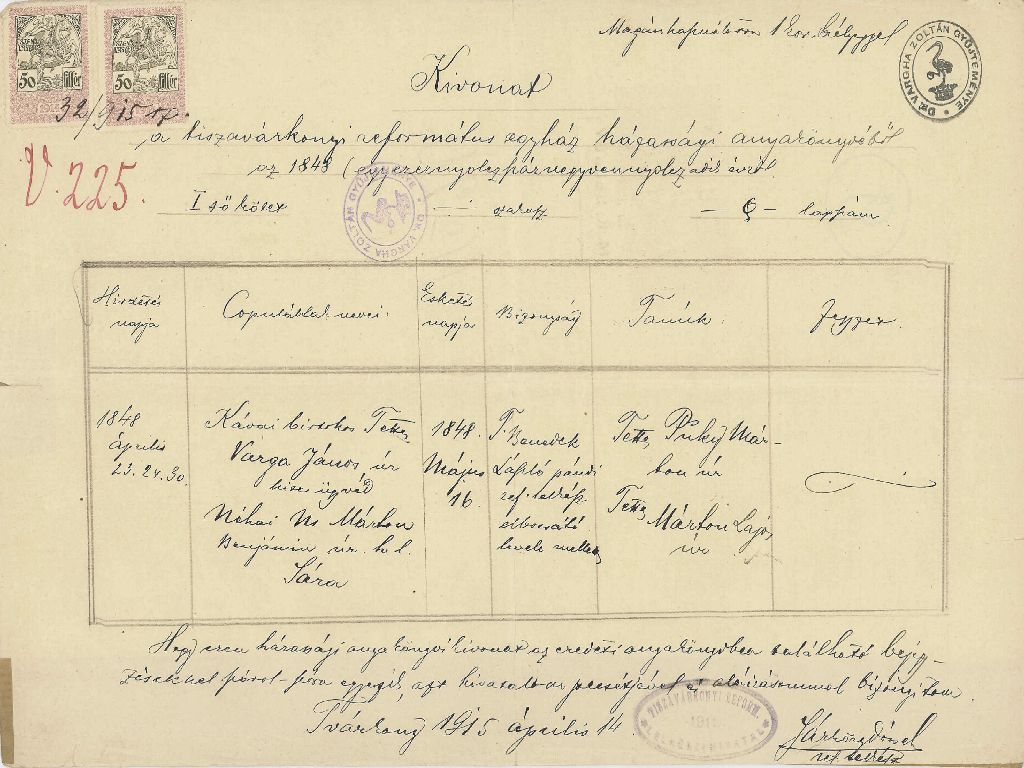 Magánhasználatra 1 kor. bélyeggel
DR. VARGHA ZOLTÁN GYŰJTEMÉNYE
50 fillér
50 fillér
32/915 sz.
Kivonat
a tiszavárkonyi református egyház házassági anyakönyvéből
az 1848 (egyezernyolczszáznegyvennyolczadik évről
V. 225.
I ső kötet
szakasz
lapján
DR. VARGHA ZOLTÁN GYŰJTEMÉNYE
Hirdetés napja
Copuláltak nevei
Esketés napja
Bizonyság
Tanúk
Jegyzet
1848 Április 23. 24. 30.
Kávai birtokos Tettes
Varga János úr
hites ügyvéd
Néhai Ns Márton
Benjámin úr. h. l.
Sára
1848.
Május
16.
T. Benedek
László pándi
ref. lelkész
elbocsátó
levele mellett
Tettes Puky Már-
ton úr
Tettes Márton Lajos
úr
Hogy ezen házassági anyakönyvi kivonat az eredeti anyakönyvben található bejegy-
zésekkel szóról-szóra egyezik, azt hivatalom pecsétjével és aláírásommal bizonyítom.
Tvárkony 1915 április 14
TISZAVÁRKONYI REFORM.
LELKÉSZI HIVATAL
ref. lelkész